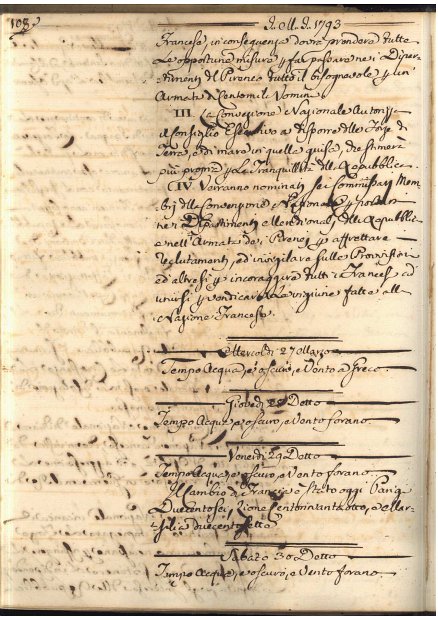 108
1793
Francese, in conseguenza dovrà prendere tutte
le opportune misure, e far passare nei Dipar-
timenti del Pireneo tutto il bisognevole un
Armata di Centomila Uomini.
III. La Convenzione Nazionale Autorizza
il Consiglio Esecutivo a disporre delle Forze di
Terra, e di mare in quella guisa, che stimerà
più propria la Tranquillità della Repubblica.
IV. Verranno nominati sei Commissarj Mem-
bri della Convenzione Nazionale
nei Dipartimenti Meridionali della Repubblica
e nell'Armata dei Pirenei affrettare
Reclutamenti, ed invigilare sulle Provvisioni
ed altresì incoraggire tutti i Francesi ad
unirsi vendicare le ingiurie fatte alla
Nazione Francese.
Mercoldì 27 Marzo
Tempo Acqua, e oscuro, e Vento a Greco.
Giovedì 28 Detto
Tempo Acqua, e oscuro, e Vento forano.
Venerdì 29 Detto
Tempo Acqua, e oscuro, e Vento forano.
Il Cambio di Francia è stato oggi Parigi
Duecentosei, Lione Centonovantaotto, e Mar-
silia duecento sette
Sabato 30 Detto
Tempo Acqua, e oscuro, e Vento forano.